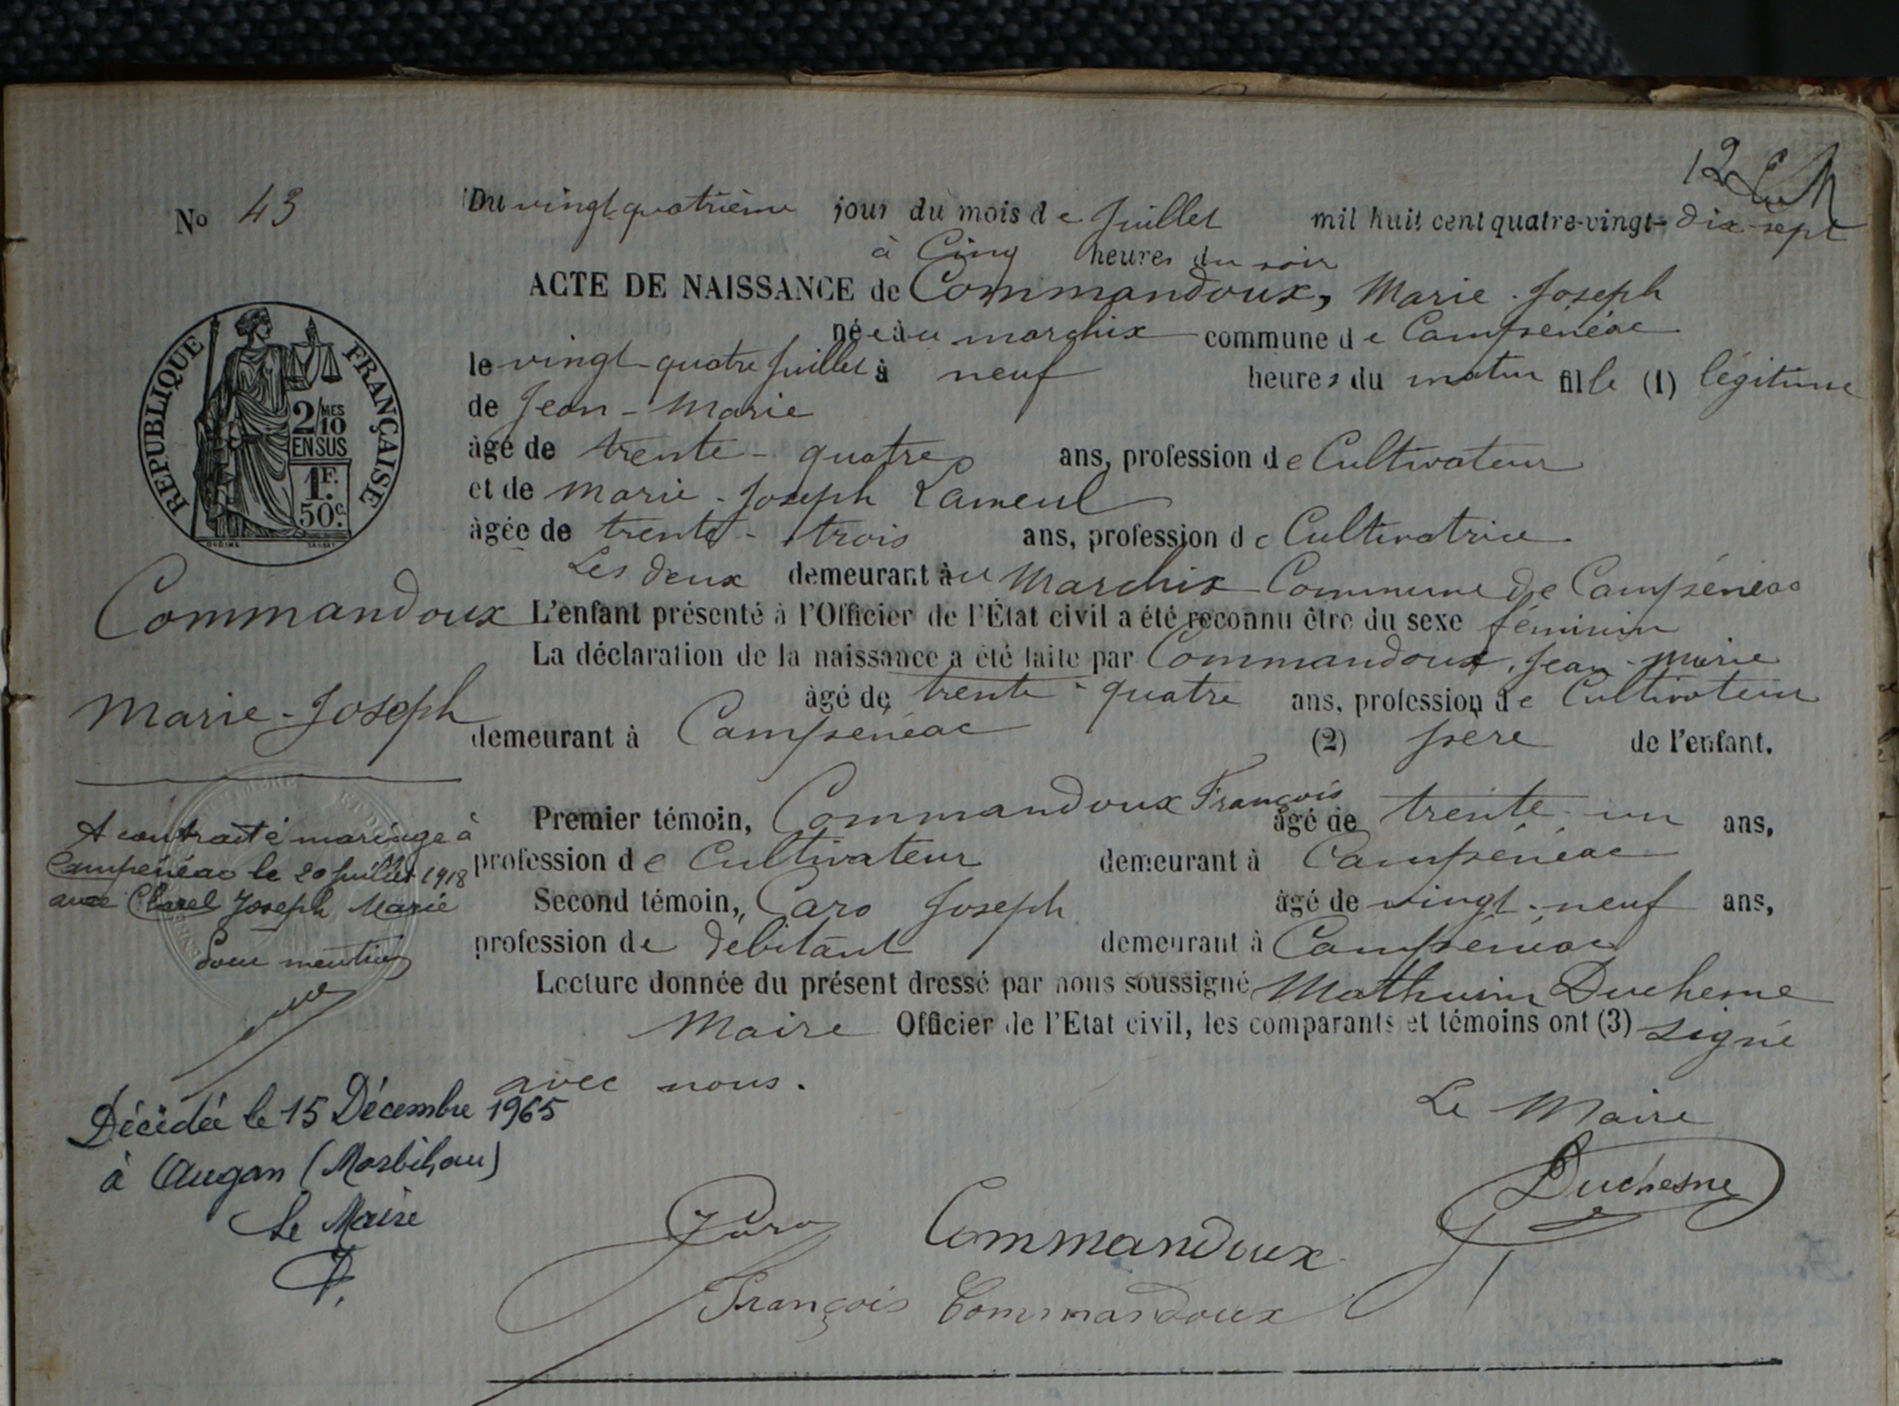 12
No 43
Du vingt-quatrième jour du mois de Juillet mil huit cent quatre-vingt-dix-sept
à Cinq heures du soir
ACTE DE NAISSANCE de Commandoux, Marie-Joseph
née au marchix commune de Campénéac
le vingt-quatre Juillet à neuf heures du matin fille (1) légitime
de Jean-Marie
âgé de trente-quatre ans, profession de Cultivateur
et de Marie-Joseph Lameul
âgée de trente-trois ans, profession de Cultivatrice
Les deux demeurant au Marchix Commune de Campénéac
L'enfant présenté à l'Officier de l'État civil a été reconnu être du sexe féminin
La déclaration de la naissance a été faite par Commandoux, Jean-Marie
âgé de trente-quatre ans, profession de Cultivateur
demeurant à Campénéac (2) père de l'enfant.
Premier témoin, Commandoux François âgé de trente-un ans,
profession de Cultivateur demeurant à Campénéac
Second témoin, Caro Joseph âgé de vingt-neuf ans,
profession de débitant demeurant à Campénéac
Lecture donnée du présent dressé par nous soussigné, Mathurin Duchesne
Maire Officier de l'Etat civil, les comparants et témoins ont (3) signé
avec nous.
Le Maire
Duchesne
Caro Commandoux
François Commandoux
RÉPUBLIQUE FRANÇAISE
2/10 MES
EN SUS
1F.
50c.
Commandoux
Marie-Joseph
A contracté mariage à
Campénéac le 20 Juillet 1918
avec Joseph Marie
Dont mention
Décédée le 15 Décembre 1965
à Augan (Morbihan)
Le Maire